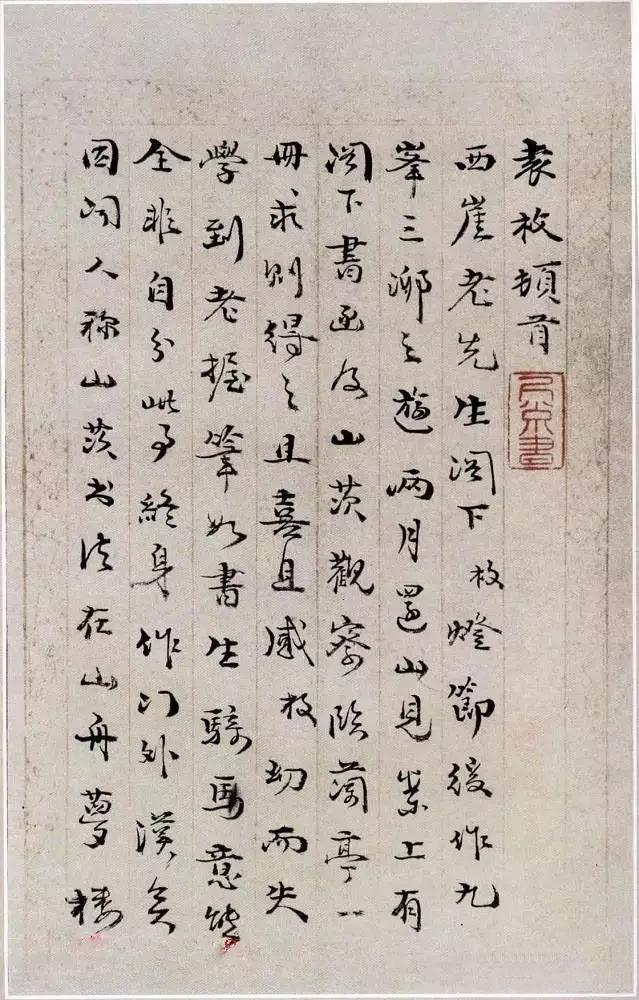 袁枚頓首
西崖老先生閣下枚燈節後作九
峯三泖之遊兩月還山見案上有
閣下書函及山茨觀察臨蘭亭一
冊求則得之且喜且感枚幼而失
學到老握筆如書生騎馬意態
全非自分此事終身作门外漢矣
因闻人称山茨书法在山舟夢樓